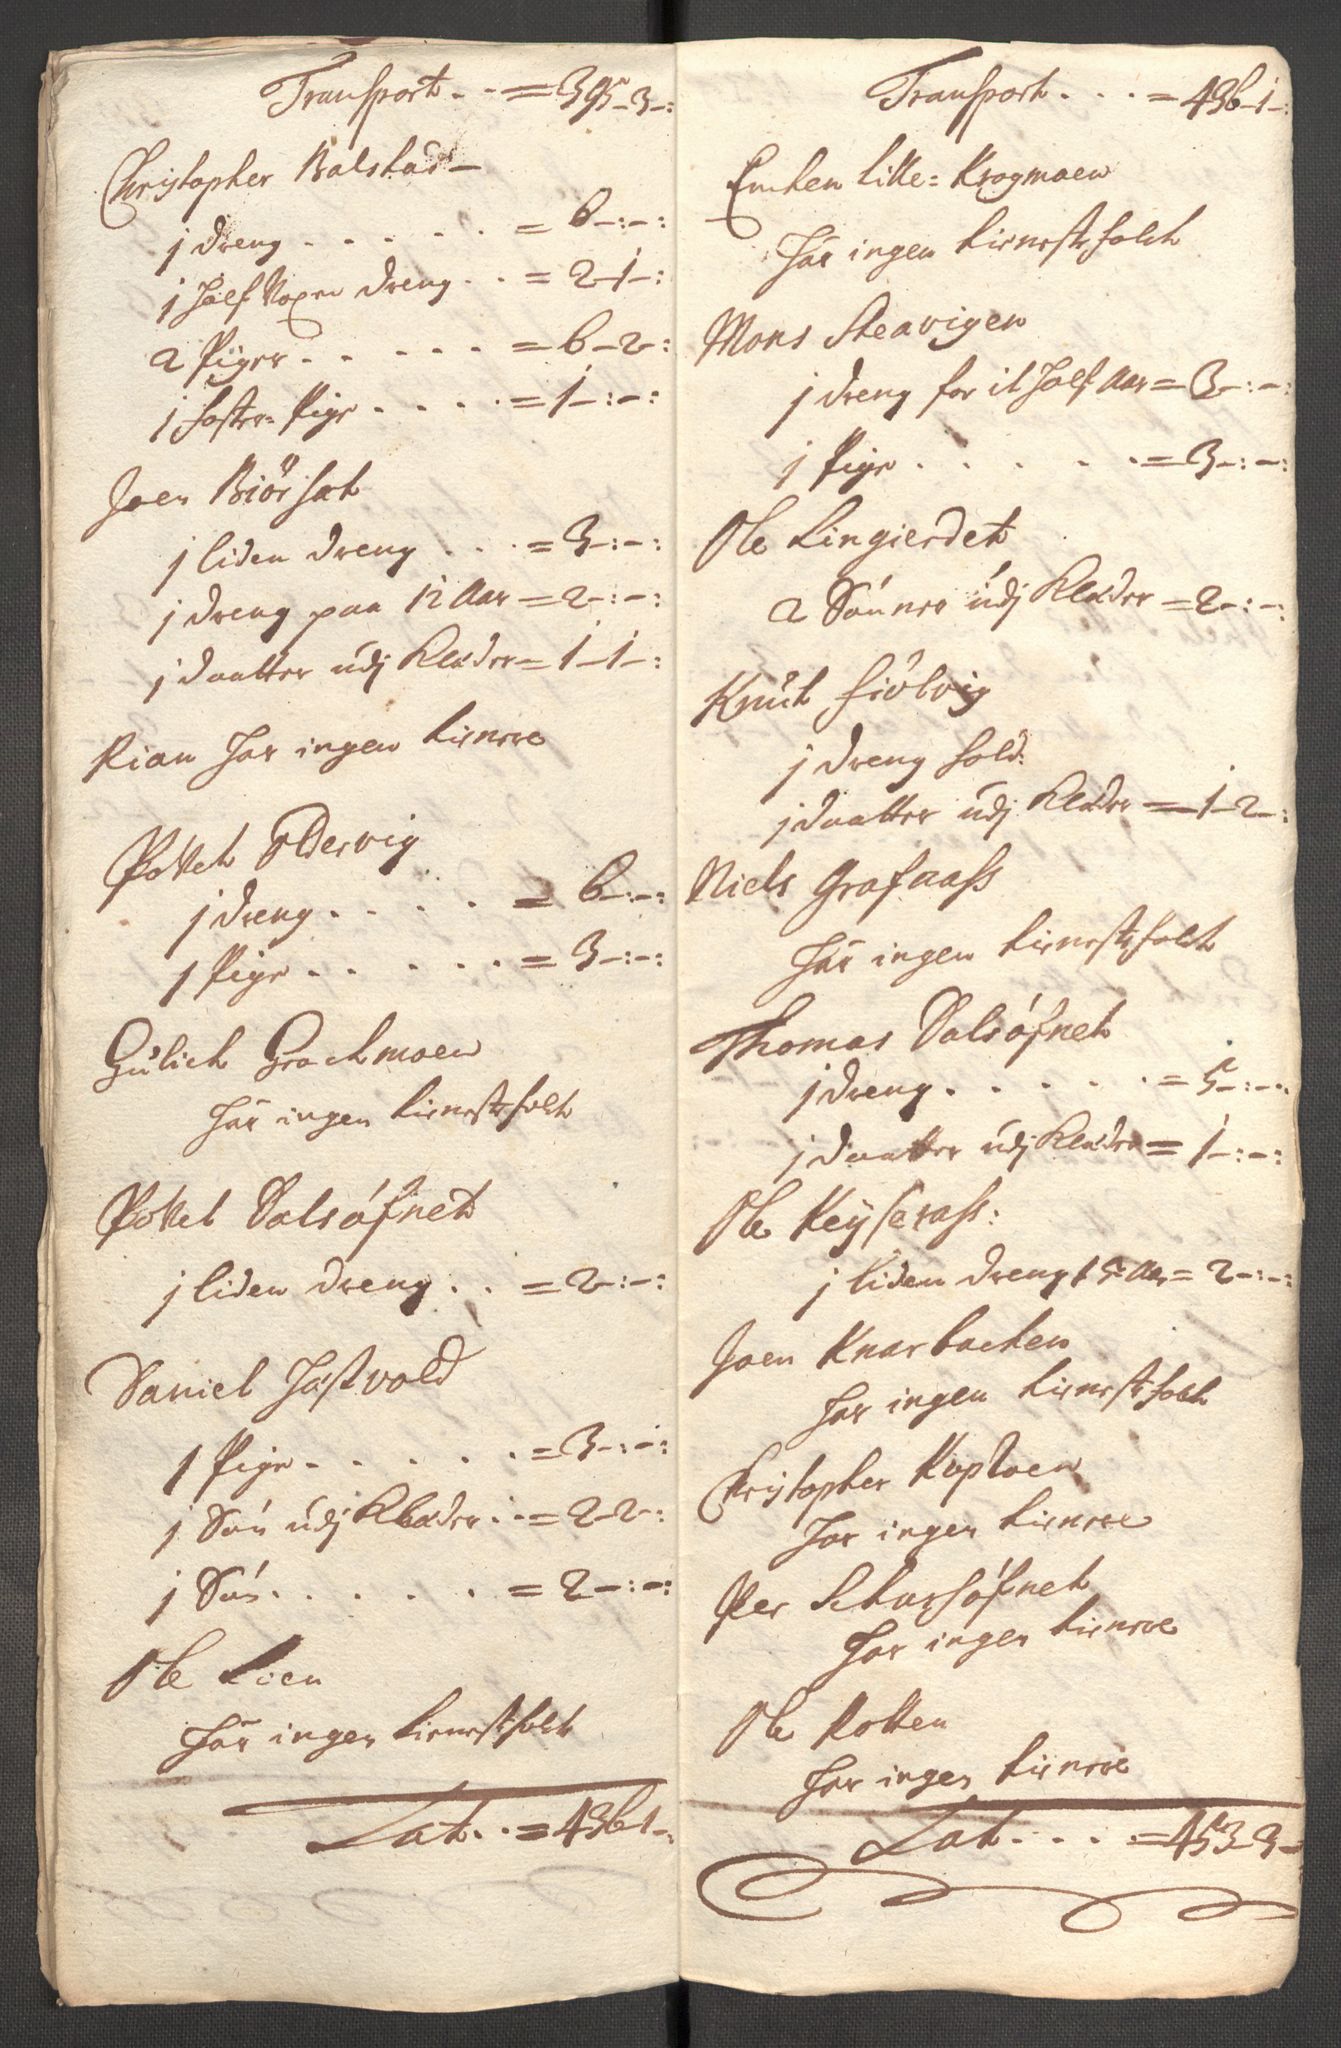 Transport . . = 395-3-:
Christopher Balstad -
j dreng . . . . . = 6-:-:
j half voxen dreng . . = 2-1-:
2 Piger . . . . . = 6-2-:
j foster-Pige . . . . = 1-:-:
Joen Biörset
j liden dreng . . . = 3-:-:
j dreng paa 12 Aar = 2-:-:
j daatter udj Klæder = 1-1-:
Rian har ingen tienere
Povel Oldervig
j dreng . . . . = 6-:-:
j Pige . . . . . = 3-:-:
Gulich Grachmoen
har ingen tienestefolch
Povel Dalsófnet
j liden dreng . . = 2-:-:
Daniel Hestvold
1 Pige . . . . . = 3-:-:
j Són udj Klæder . . = 2-2-:
j Són . . . . . = 2-:-:
Ole Lien
har ingen tienestefolch
Lat . . = 436-1-:
Transport . . . = 436-1-:
lille-Krogmoen
har ingen tienestefolch
Mons Steavigen
j dreng for it half Aar = 3-:-:
j Pige . . . . . = 3-:-:
Ole Lingierdet
2 Sónner udj Klæder = 2-:-:
Knud Siölvig
j dreng Sold:
j daatter udj Klæder = 1-2-:
Niels Grafaass
har ingen tienestefolch
Thomas Dalsófnet
j dreng . . . . . = 5-:-:
j daatter udj Klæder = 1-:-:
Ole Keyserass:
j liden dreng 15 Aar = 2-:-:
Joen Knarbachen
har ingen tienestefolch
Christopher Koploen
har ingen tienere
Per Scharsófnet
har ingen tienere
Ole Kollen
har ingen tienere
Lat . . . . = 453-3-